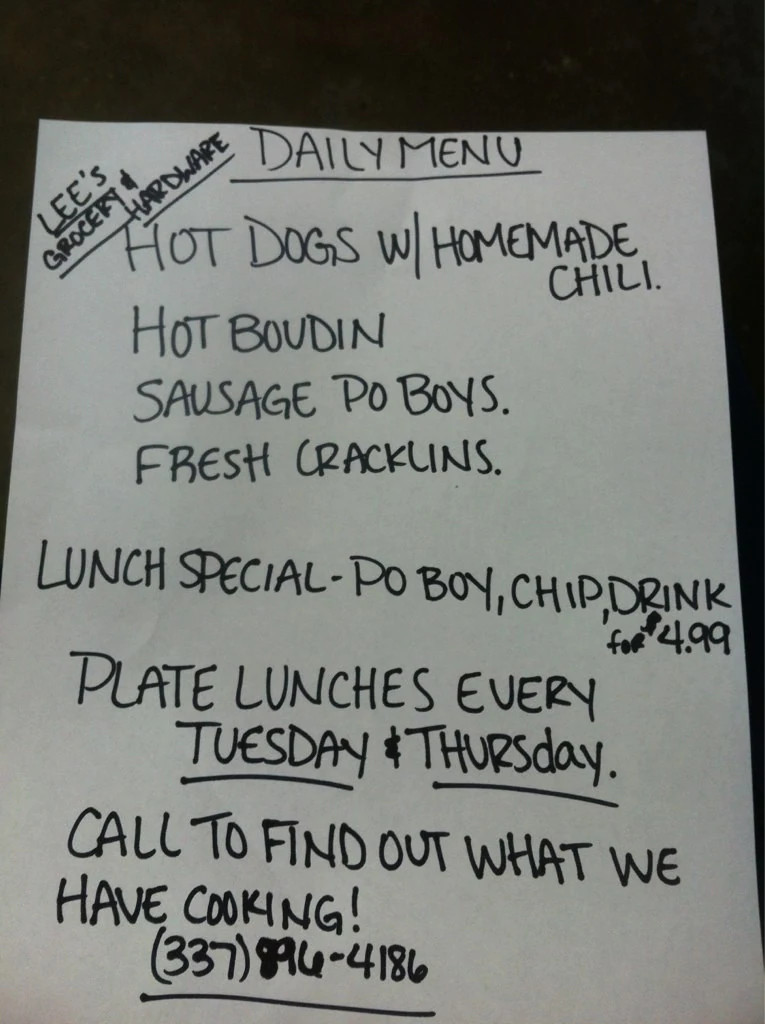 LEE'S
GROCERY &
HARDWARE
DAILY MENU
HOT DOGS W/ HOMEMADE
CHILI.
HOT BOUDIN
SAUSAGE PO BOYS.
FRESH CRACKLINS.
LUNCH SPECIAL - PO BOY, CHIP, DRINK
for $4.99
PLATE LUNCHES EVERY
TUESDAY & THURSday.
CALL TO FIND OUT WHAT WE
HAVE COOKING!
(337) 896-4186